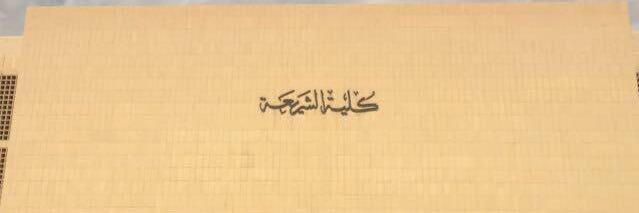 كلية الشريعة